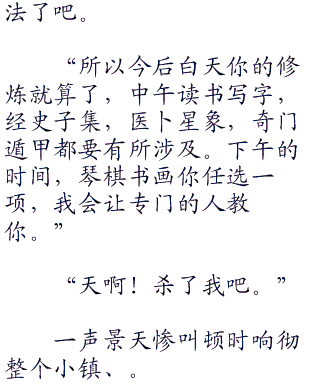 法了吧。
“所以今后白天你的修
炼就算了，中午读书写字，
经史子集，医卜星象，奇门
遁甲都要有所涉及。下午的
时间，琴棋书画你任选一
项，我会让专门的人教
你。”
“天啊！杀了我吧。”
一声景天惨叫顿时响彻
整个小镇、。